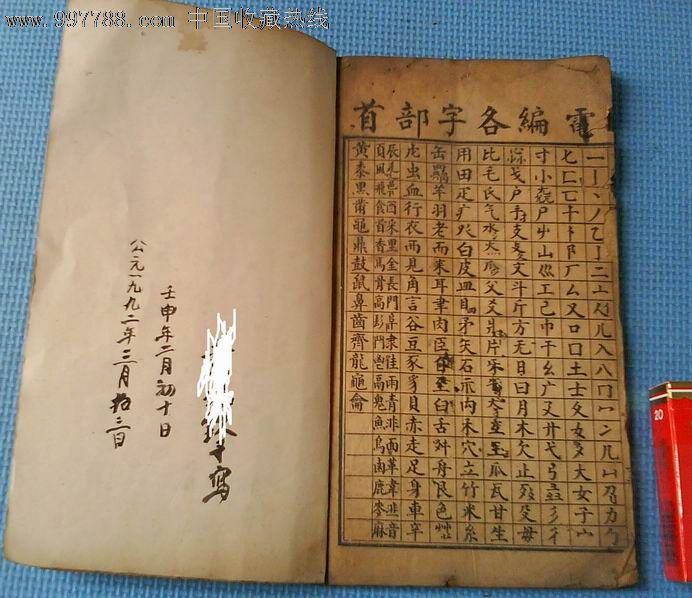 www.997788.com 中国收藏热线
電編各字部首
一丨丶丿乙亅二亠人儿入八冂冖冫几凵刀力勹
匕匚匸十卜卩厂厶又口囗土士夂夊夕大女子宀
寸小尢尸屮山巛工己巾干幺广廴廾弋弓彐彡彳
心戈户手支攴文斗斤方无日曰月木欠止歹殳毋
比毛氏气水火爪父爻爿片牙牛犬玄玉瓜瓦甘生
用田疋疒癶白皮皿目矛矢石示禸禾穴立竹米糸
缶网羊羽老而耒耳聿肉臣自至臼舌舛舟艮色艸
虍虫血行衣襾見角言谷豆豕豸貝赤走足身車辛
辰辵邑酉釆里金長門阜隶隹雨青非面革韋韭音
頁風飛食首香馬骨高髟鬥鬯鬲鬼魚鳥鹵鹿麥麻
黃黍黑黹黽鼎鼓鼠鼻齒齊龍龜龠
寫
壬申年二月初十日
公元一九九二年三月拾三日
20